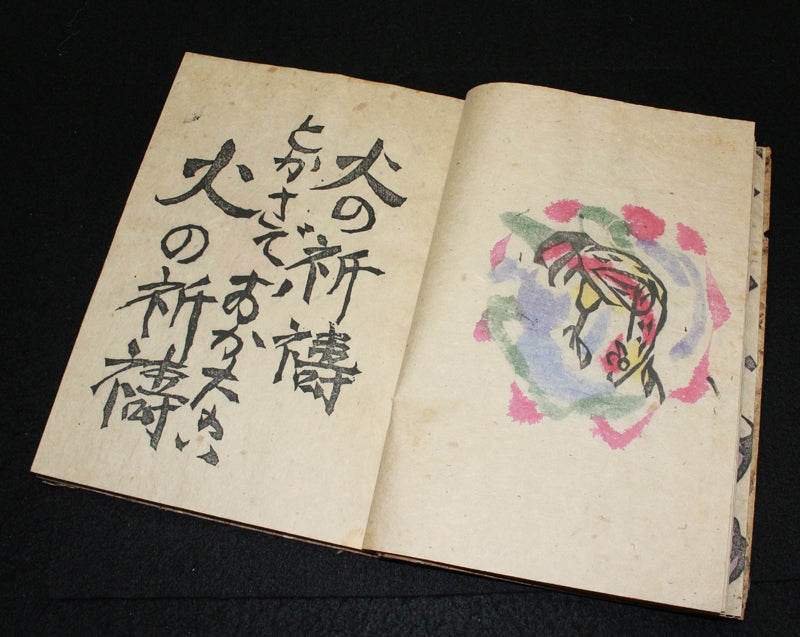 火の祈禱
とかさで おかない
火の祈禱